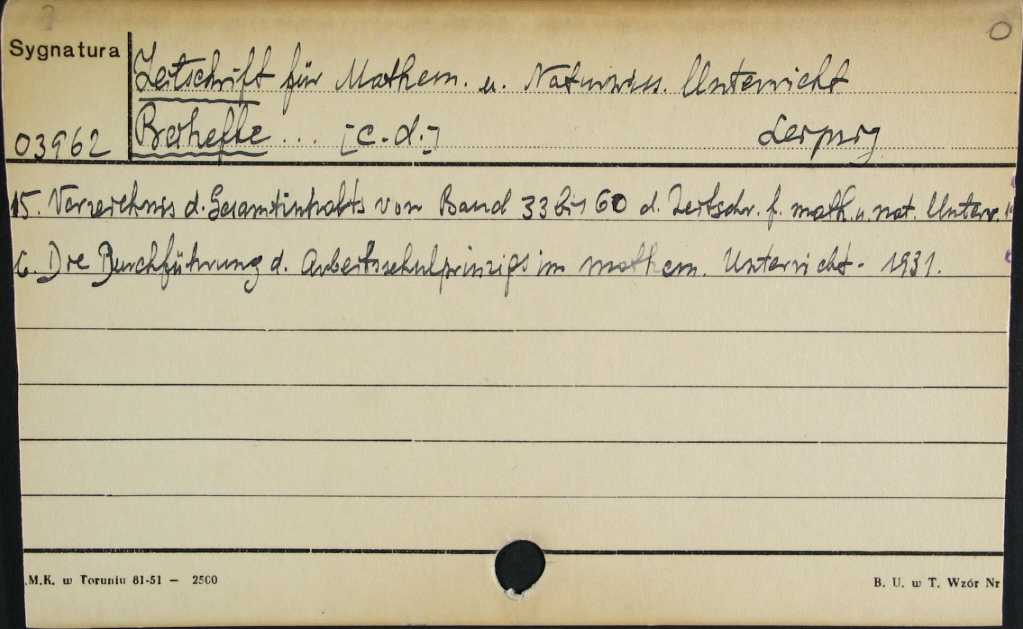 Sygnatura
Zeitschrift für Mathem. u. Naturwiss. Unterricht
03962 Beihefte ... [c.d.] Leipzig
15. Verzeichnis d. Gesamtinhalts von Band 33 bis 60 d. Zeitschr. f. math. u. nat. Unterr.
6. Die Durchführung d. Arbeitsschulprinzips im mathem. Unterricht. 1931.
.M.K. w Toruniu 81-51 — 2500
B. U. w T. Wzór Nr